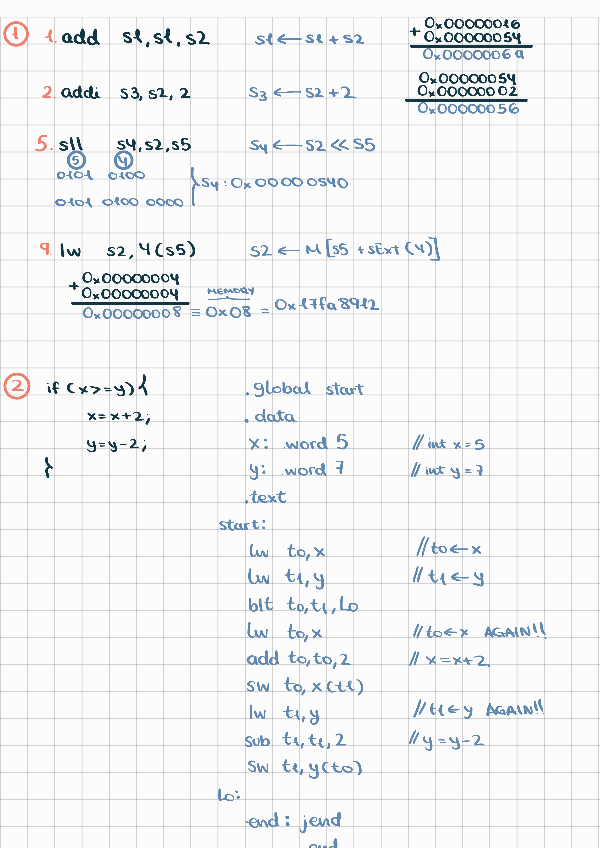 1 1. add s1, s1, s2 s1 ← s1 + s2 0x00000016
+ 0x00000054
0x0000006a
2. addi s3, s2, 2 s3 ← s2 + 2 0x00000054
0x00000002
0x00000056
5. sll s4, s2, s5 s4 ← s2 << s5
5 4
0101 0100 } s4: 0x00000540
0101 0100 0000
9. lw s2, 4(s5) s2 ← M[s5 + sExt(4)]
0x00000004
+ 0x00000004 MEMORY
0x00000008 ≡ 0x08 = 0x17fa8912
2 if (x>=y){ .global start
x=x+2; .data
y=y-2; x: .word 5 // int x=5
} y: .word 7 // int y=7
.text
start:
lw t0, x // t0 ← x
lw t1, y // t1 ← y
blt t0, t1, L0
lw t0, x // t0 ← x AGAIN!!
add t0, t0, 2 // x=x+2
sw t0, x(t1)
lw t1, y // t1 ← y AGAIN!!
sub t1, t1, 2 // y=y-2
sw t1, y(t0)
L0:
end: jend